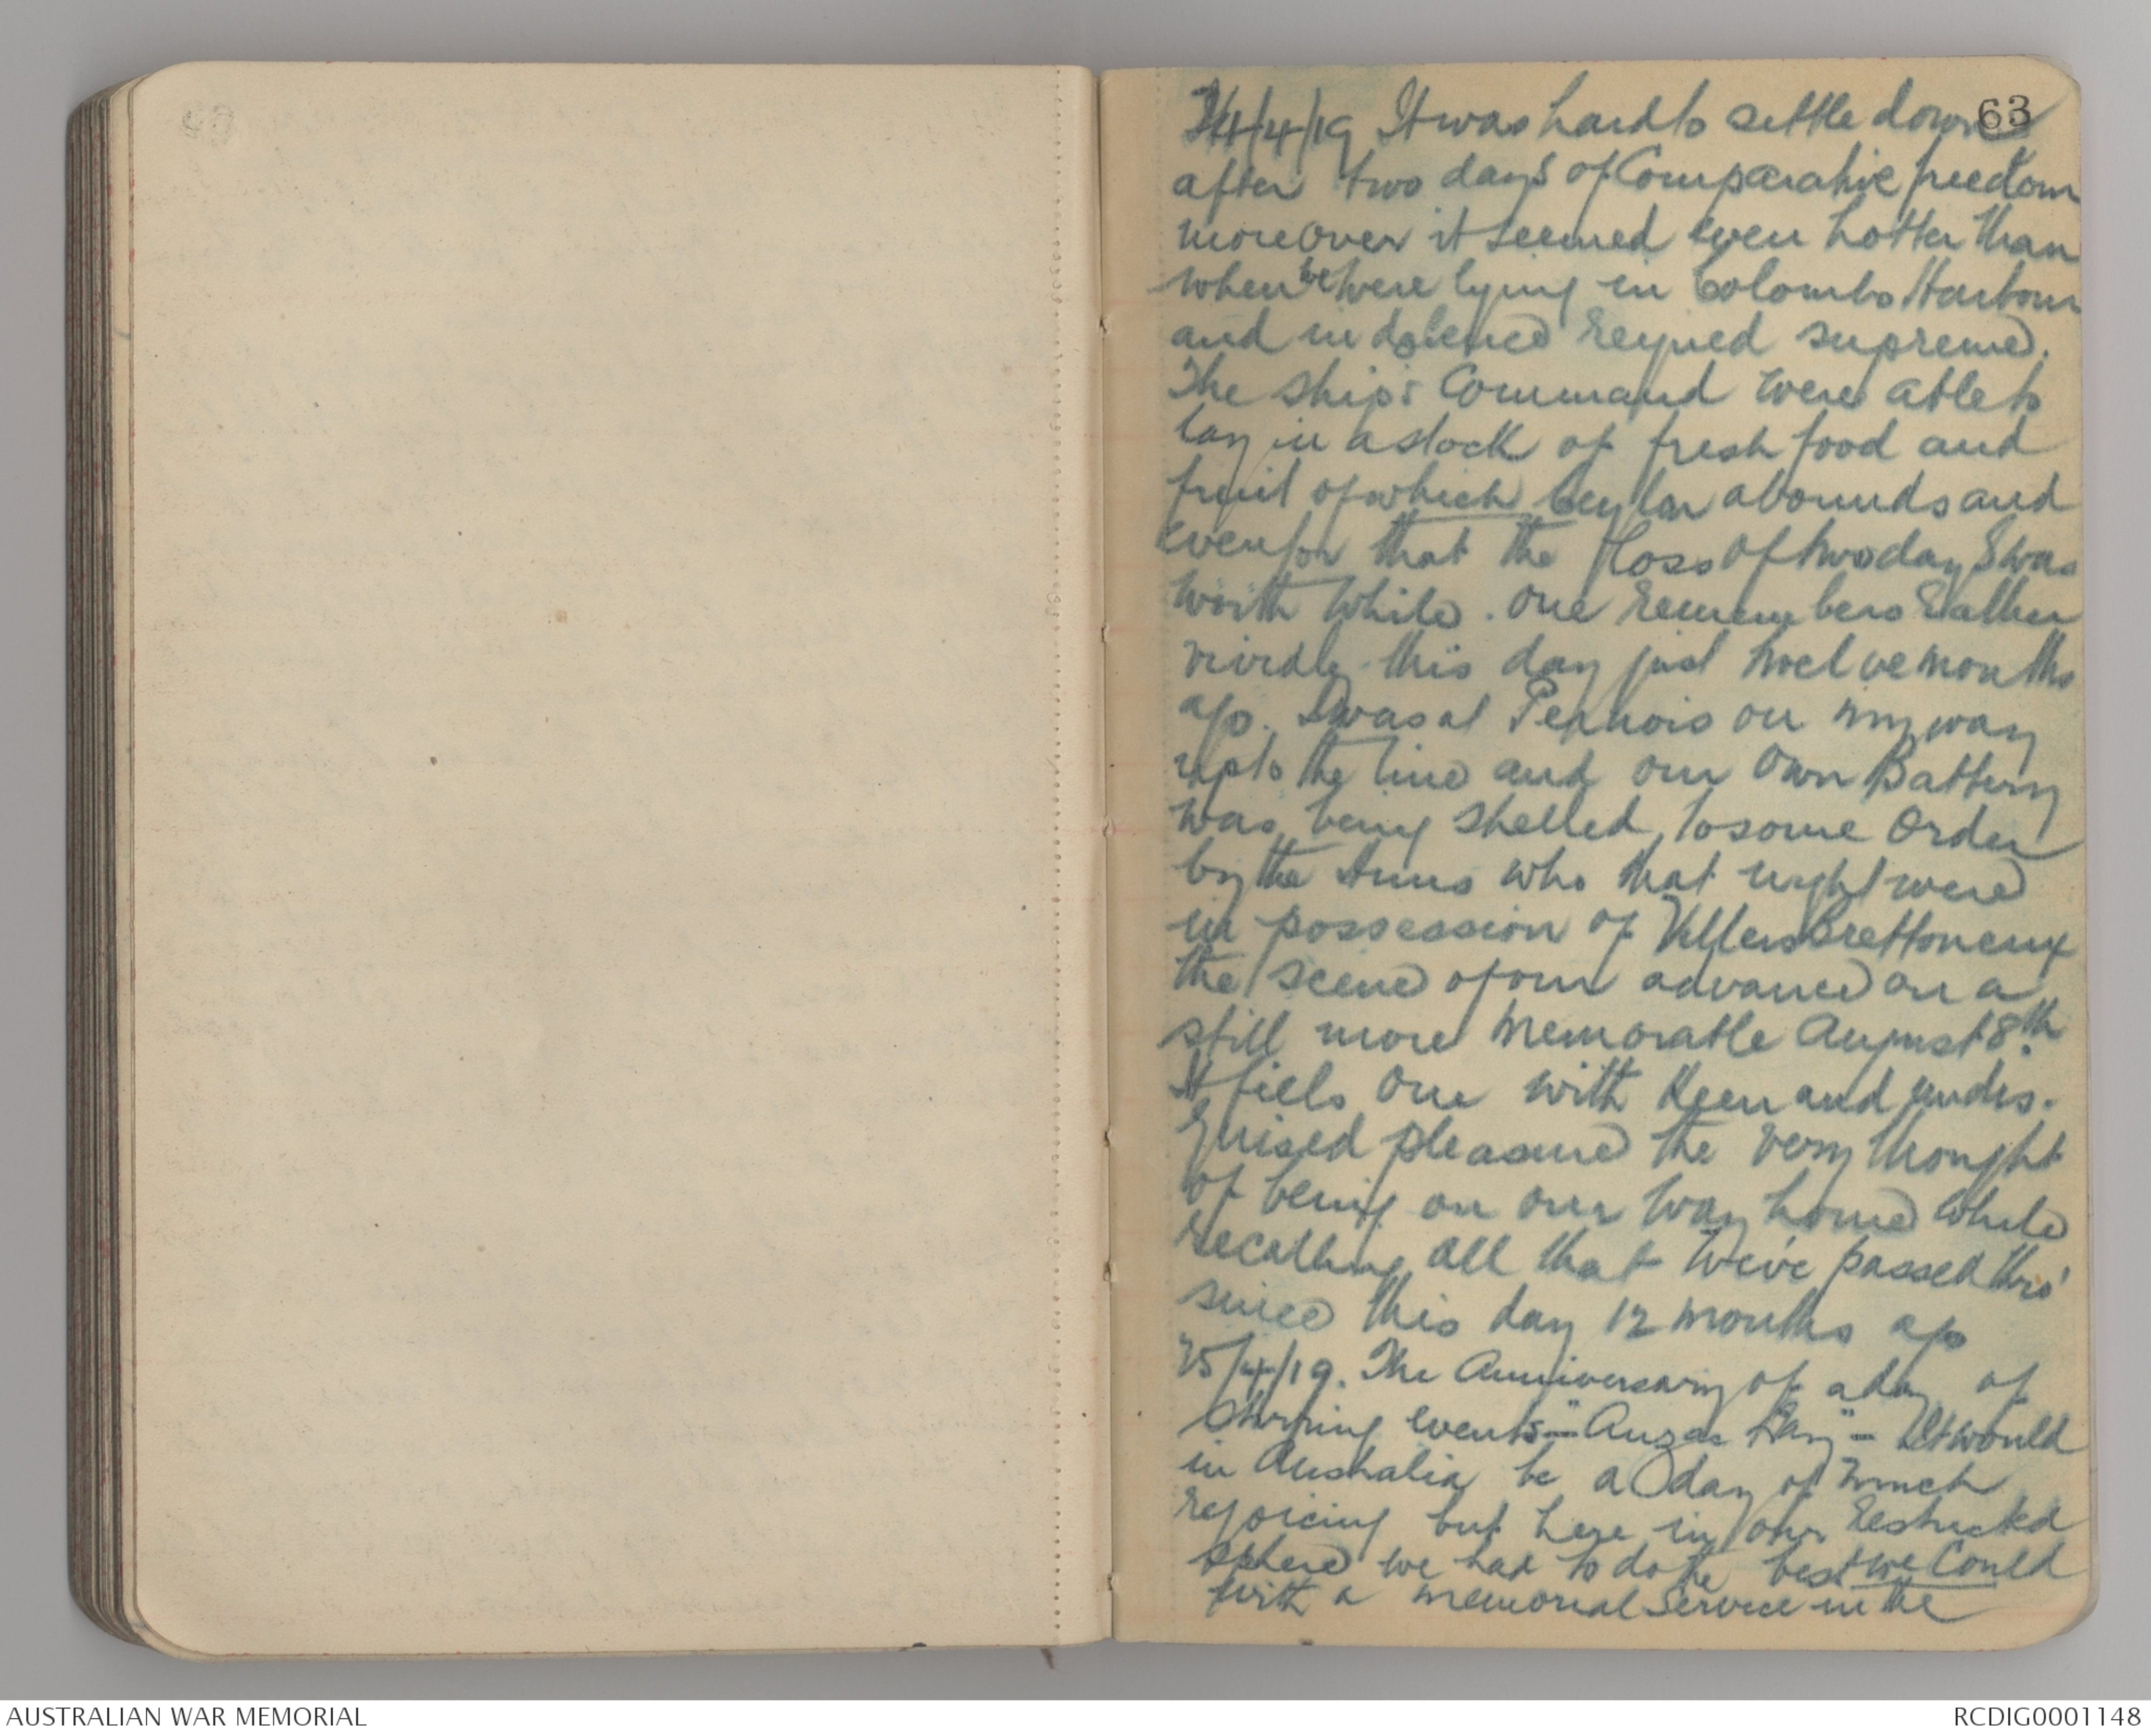 63
24/4/19 It was hard to settle down
after two days of Comparative freedom
moreover it seemed even hotter than
when we were lying in Colombo Harbour
and indolence reigned supreme.
The Ship's Command were able to
lay in a stock of fresh food and
fruit of which Ceylon abounds and
even for that the loss of two days was
worth while. One remembers rather
vividly this day just twelve months
ago. I was at Pernois on my way
up to the line and our own Battery
was being shelled, to some order
by the Huns who that night were
in possession of Villers Brettoneux
the scene of our advance on a
still more memorable August 8th.
It fills one with keen and undis-
guised pleasure the very thought
of being on our way home while
recalling all that we've passed thro'
since this day 12 months ago
25/4/19. The Anniversary of a day of
stirring events - "Anzac Day" - It would
in Australia be a day of much
rejoicing but here in our restricted
sphere we had to do the best we could
with a memorial Service in the
AUSTRALIAN WAR MEMORIAL
RCDIG0001148